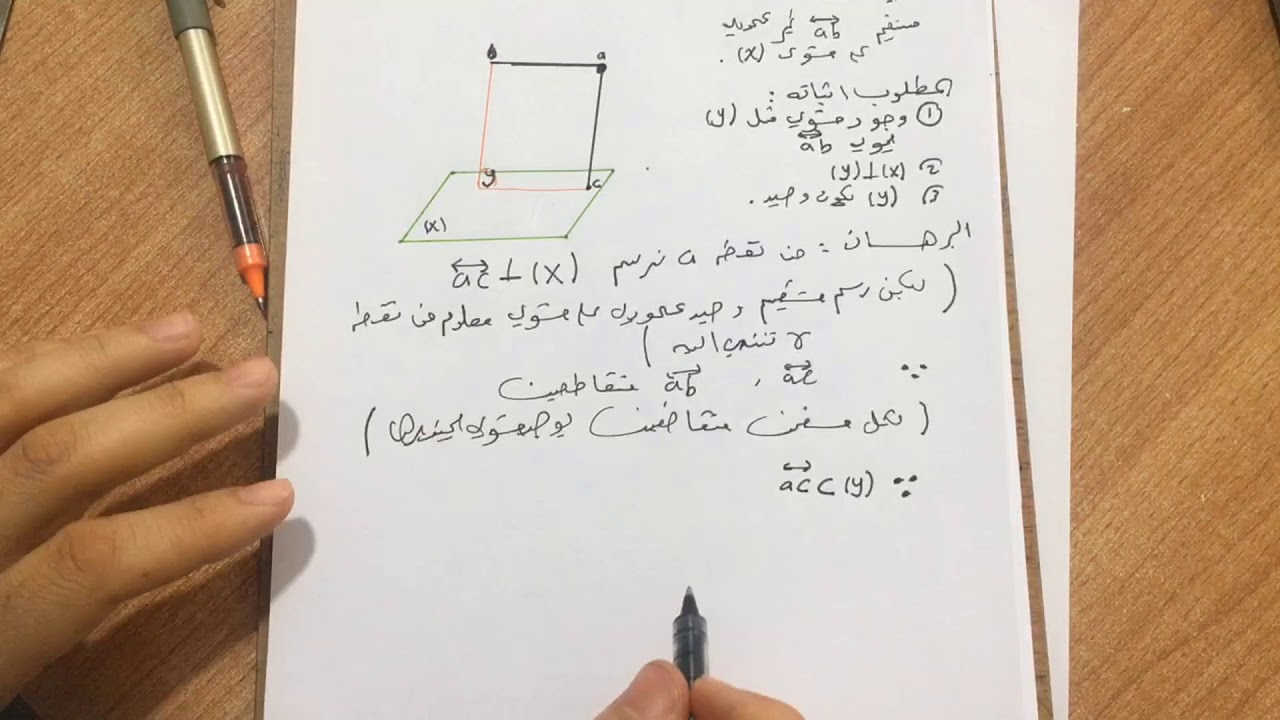 مستقيم ab غير عمودي
على مستوى (X) .
المطلوب اثباته :
① وجود مستوي مثل (y)
يحوي ab
② (y)⊥(x)
③ (y) يكون وحيد .
b
a
y
c
(X)
البرهان : من نقطة a نرسم ac⊥(X)
( يمكن رسم مستقيم وحيد عمودي على مستوي معلوم من نقطة
لا تنتمي اليه )
∵ ac , ab متقاطعين
( لكل مستقيمين متقاطعين يوجد مستوي يحويهما )
∵ ac⊂(y)